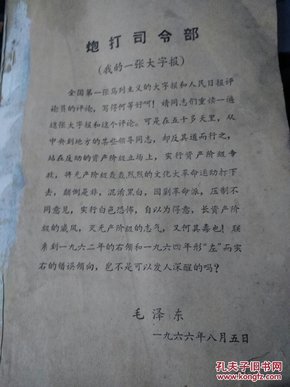 炮打司令部
(我的一张大字报)
全国第一张马列主义的大字报和人民日报评
论员的评论，写得何等好啊！请同志们重读一遍
这张大字报和这个评论。可是在五十多天里，从
中央到地方的某些领导同志，却反其道而行之，
站在反动的资产阶级立场上，实行资产阶级专
政，将无产阶级轰轰烈烈的文化大革命运动打下
去，颠倒是非，混淆黑白，围剿革命派，压制不
同意见，实行白色恐怖，自以为得意，长资产阶
级的威风，灭无产阶级的志气，又何其毒也！联
系到一九六二年的右倾和一九六四年形“左”而实
右的错误倾向，岂不是可以发人深醒的吗？
毛泽东
一九六六年八月五日
孔夫子旧书网